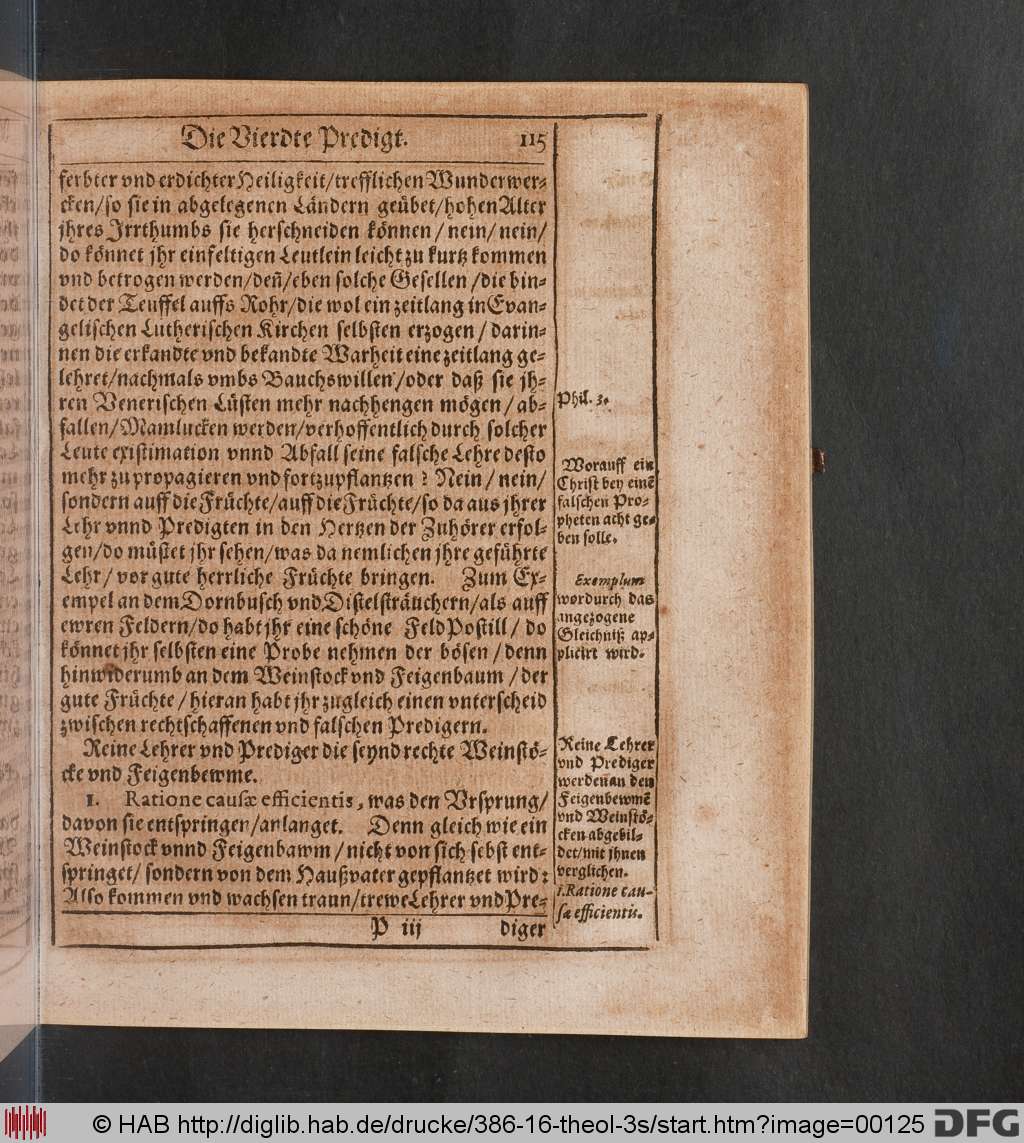 Die Vierdte Predigt. 115
ferbter vnd erdichter Heiligkeit/trefflichen Wunderwer-
cken/so sie in abgelegenen Ländern geübet/hohen Alter
jhres Irrthumbs sie herschneiden können/nein/nein/
do könnet jhr einfeltigen Leutlein leicht zu kurtz kommen
vnd betrogen werden/deñ/eben solche Gesellen/die bin-
det der Teuffel auffs Rohr/die wol ein zeitlang in Evan-
gelischen Lutherischen Kirchen selbsten erzogen/darin-
nen die erkandte vnd bekandte Warheit eine zeitlang ge-
lehret/nachmals vmbs Bauchswillen/oder daß sie jh-
ren Venerischen Lüsten mehr nachhengen mögen/ab-
fallen/Mamlucken werden/verhoffentlich durch solcher
Leute existimation vnnd Abfall seine falsche Lehre desto
mehr zu propagieren vnd fortzupflantzen? Nein/nein/
sondern auff die Früchte/auff die Früchte/so da aus jhrer
Lehr vnnd Predigten in den Hertzen der Zuhörer erfol-
gen/do müstet jhr sehen/was da nemlichen jhre geführte
Lehr/vor gute herrliche Früchte bringen. Zum Ex-
empel an dem Dornbusch vnd Distelsträuchern/als auff
ewren Feldern/do habt jhr eine schöne FeldPostill/do
könnet jhr selbsten eine Probe nehmen der bösen/denn
hinwiderumb an dem Weinstock vnd Feigenbaum/der
gute Früchte/hieran habt jhr zugleich einen vnterscheid
zwischen rechtschaffenen vnd falschen Predigern.
Reine Lehrer vnd Prediger die seynd rechte Weinstö-
cke vnd Feigenbewme.
1. Ratione causæ efficientis, was den Vrsprung/
davon sie entspringen/anlanget. Denn gleich wie ein
Weinstock vnnd Feigenbawm/nicht von sich sebst ent-
springet/sondern von dem Haußvater gepflantzet wird:
Also kommen vnd wachsen traun/trewe Lehrer vnd Pre-
P iij diger
Phil. 3.
Worauff ein
Christ bey einē
falschen Pro-
pheten acht ge-
ben solle.
Exemplum
wordurch das
angezogene
Gleichniß ap-
plicirt wird.
Reine Lehrer
vnd Prediger
werden an den
Feigenbewmē
vnd Weinstö-
cken abgebil-
det/mit jhnen
verglichen.
1. Ratione cau-
sæ efficientis.
© HAB http://diglib.hab.de/drucke/386-16-theol-3s/start.htm?image=00125 DFG